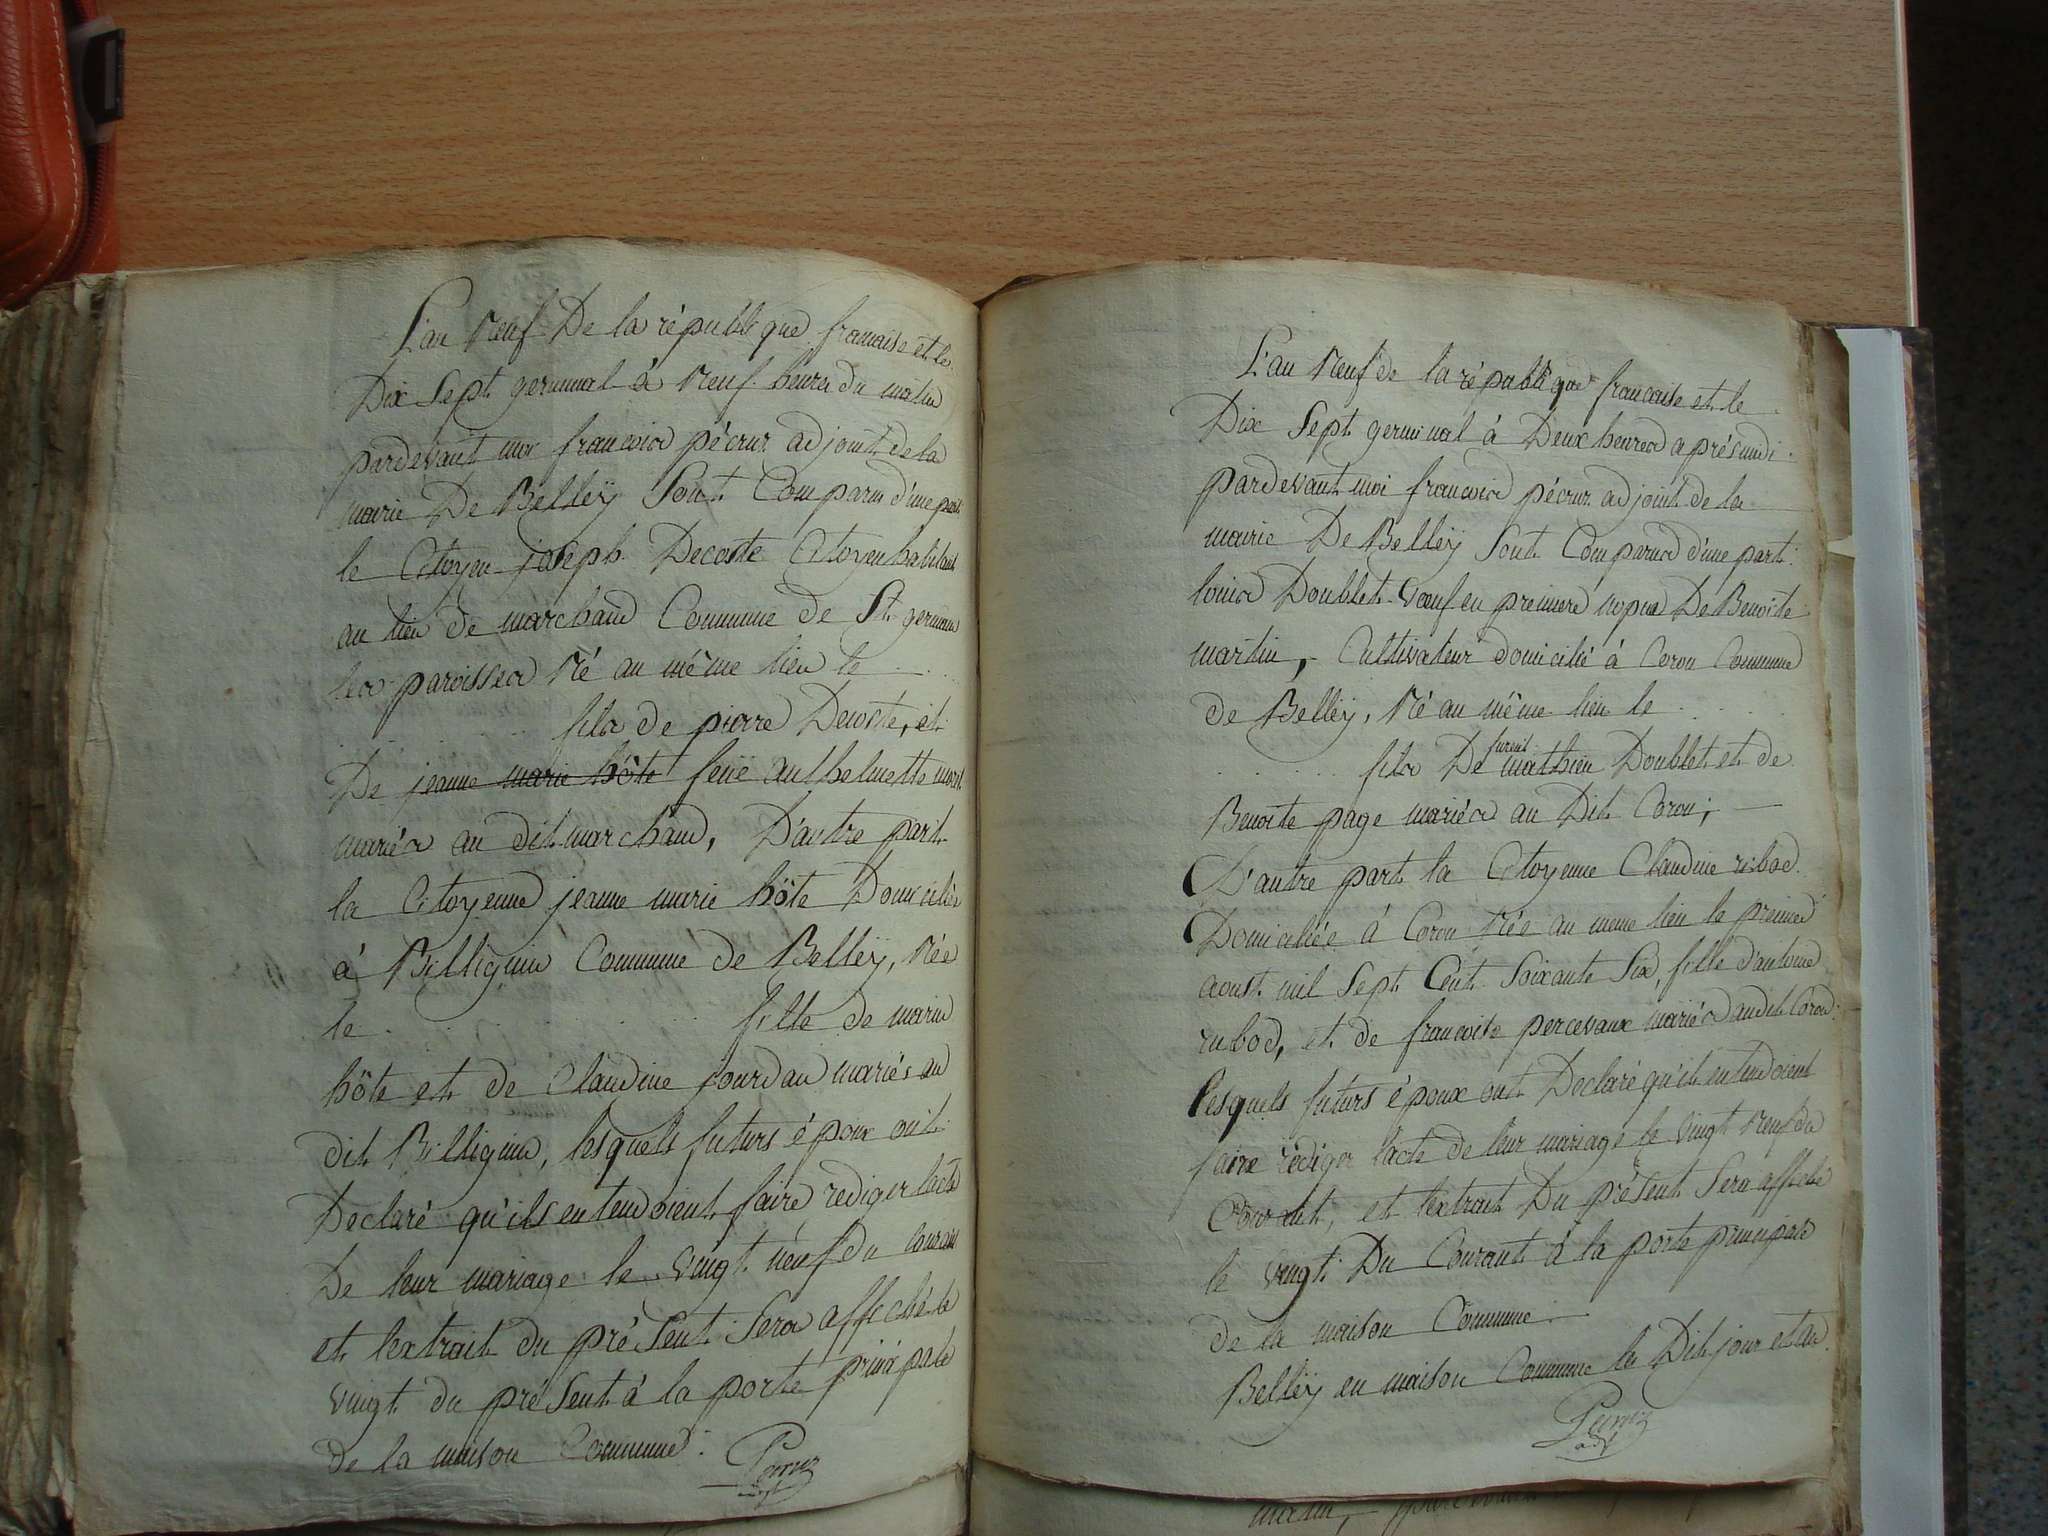 L'an Neuf De la république francaise et le
Dix Sept germinal à Neuf heures du matin
pardevant moi francois pécruz adjoint de la
mairie De Belleÿ Sont Comparus d'une part
le Citoyen joseph Decoste Citoyen habitant
au lieu de marchand Commune de St. germain
les paroisses Né au même lieu le
fils de pierre Decoste, et
De jeanne marie hôte feüe anthelmette
mariés au dit marchand, D'autre part
la Citoyenne jeanne marie hôte Domiciliée
à Billignin Commune de Belleÿ, Née
le fille de marin
hôte et de Claudine jourdan mariés au
dit Billignin, lesquels futurs époux ont
Declaré qu'ils entendoient faire rediger lacte
De leur mariage le vingt neuf du courant
et lextrait du présent Sera affiché le
vingt du présent à la porte principale
de la maison Commune.
L'an Neuf de la république francaise et le
Dix Sept germinal à Deux heures après midi
pardevant moi francois pécruz adjoint de la
mairie De Belleÿ Sont Comparus d'une part
louis Doublet Vœuf en premiere nopce De Benoite
martin, Cultivateur domicilié à Coron Commune
de Belleÿ, Né au même lieu le
fils De mathieu Doublet et de
Benoite page mariés au Dit Coron;
D'autre part la Citoyenne Claudine rubod
Domiciliée à Coron Née au meme lieu le premier
aoust mil Sept Cent Soixante Six, fille d'antoine
rubod, et de francoise percevaux mariés audit Coron
lesquels futurs époux ont Declaré qu'ils entendoient
faire rediger lacte de leur mariage le vingt Neuf du
Courant, et lextrait Du présent Sera affiché
le vingt Du Courant à la porte principale
de la maison Commune
Belleÿ en maison Commune le Dit jour et an